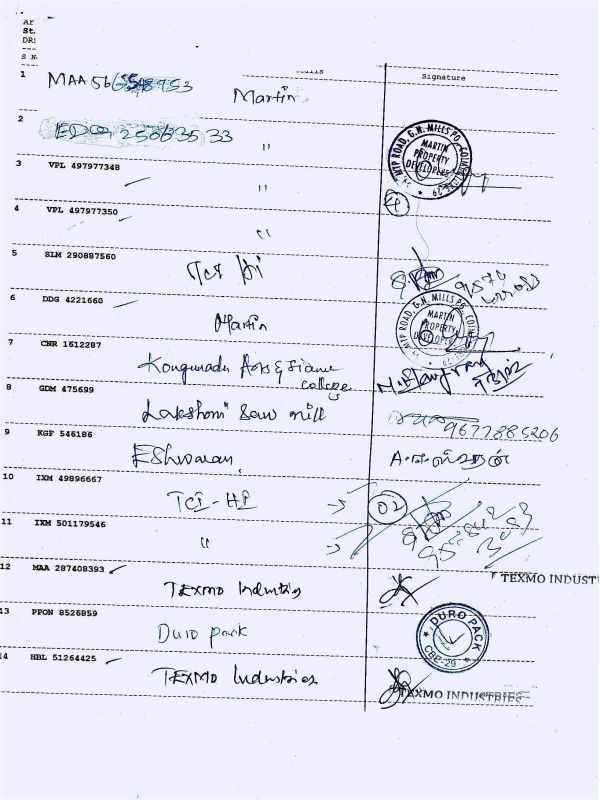 Ar
St.
DR:
S N
Signature
1 MAA 56 953
Martin
2 EDQ 25063533
"
MTP ROAD, G.N. MILLS PO, COIMBATORE-29
MARTIN
PROPERTY
DEVELOPERS
3 VPL 497977348
"
4 VPL 497977350
"
5 SLM 290887560
TCI HI
6 DDG 4221660
Martin
MTP ROAD, G.N. MILLS PO, COIMBATORE-29
MARTIN
PROPERTY
DEVELOPERS
7 CNR 1612287
Kongunadu Arts & Sianc
college
8 GDM 475699
Lakshmi Saw mill
9677885206
9 KGF 546186
Eshwaran
10 IXM 49896667
TCI-HI
02
11 IXM 501179546
"
12 MAA 287408393
TEXMO Industris
TEXMO INDUST
13 PPON 8526859
Duro pack
DURO PACK
CBE-29
14 HBL 51264425
TEXMO Industries
TEXMO INDUSTRIES